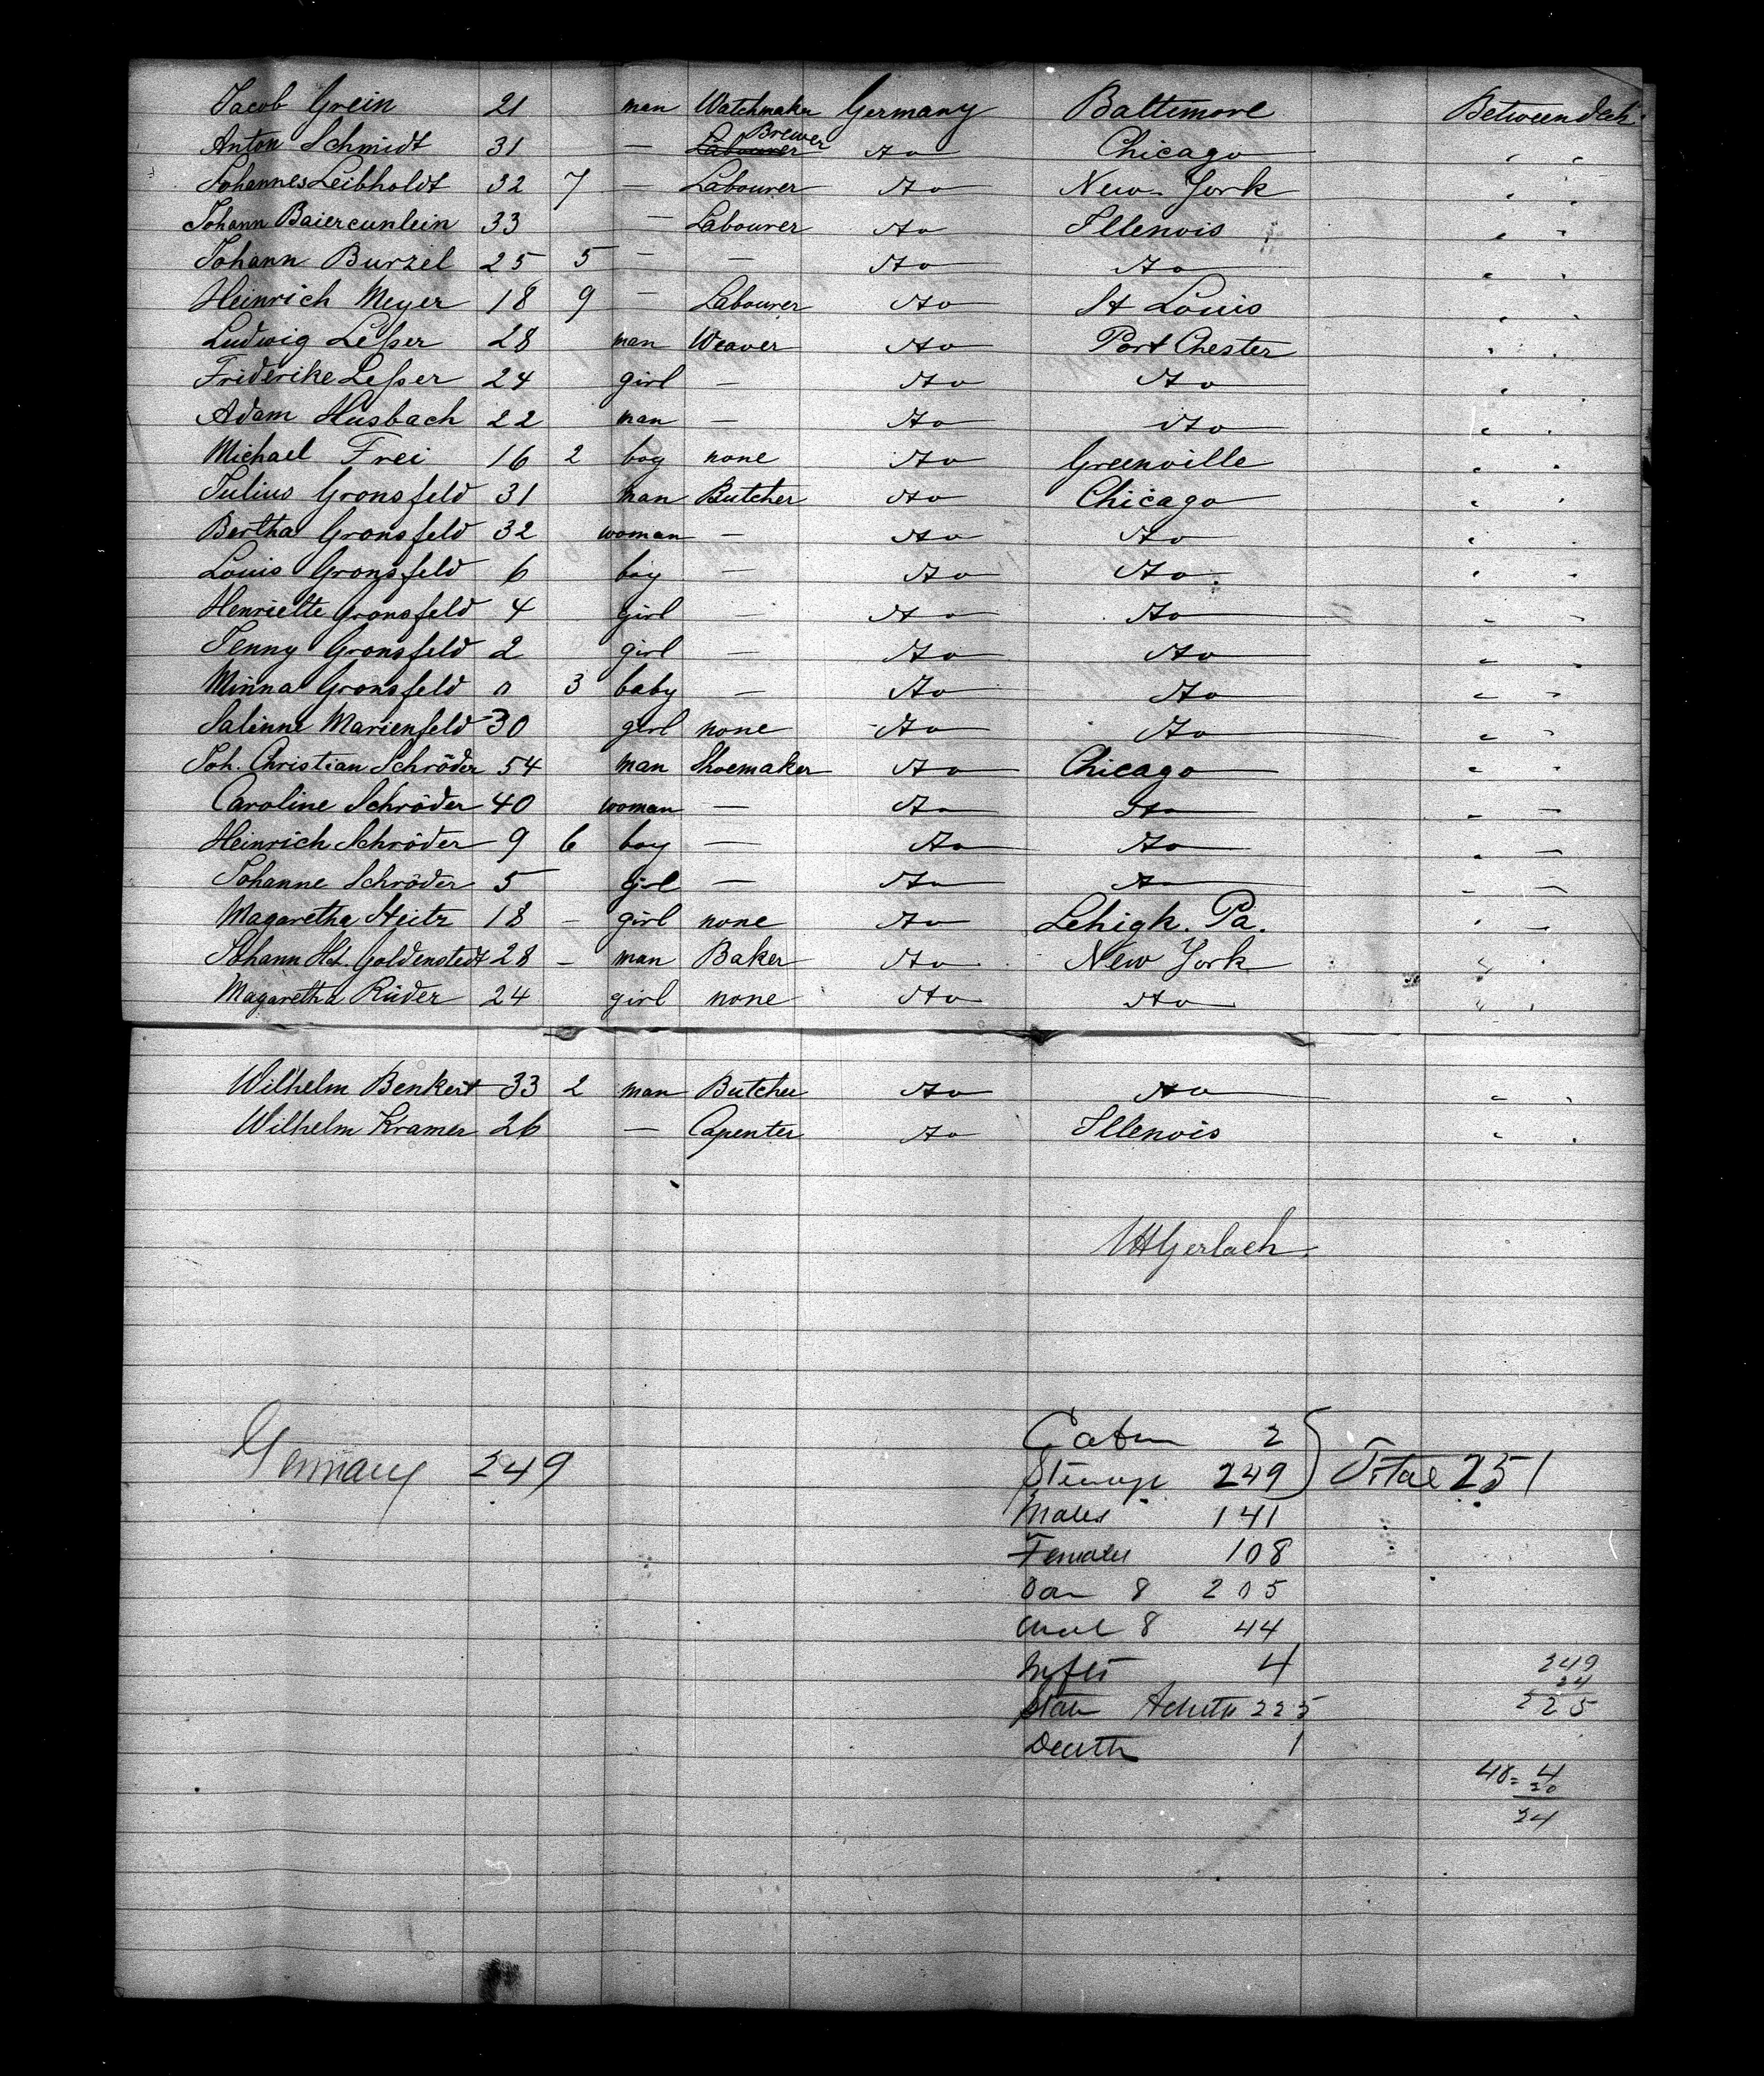 Jacob Grein 21 man Watchmaker Germany Baltimore Betweendeck
Anton Schmidt 31 — Labourer Brewer do Chicago " "
Johannes Leibholdt 32 7 — Labourer do New-York " "
Johann Baiercunlein 33 — Labourer do Illenois " "
Johann Burzel 25 5 — — do do " "
Heinrich Meyer 18 9 — Labourer do St Louis " "
Ludwig Leßer 28 man Weaver do Port Chester " "
Friderike Leßer 24 girl — do do " "
Adam Husbach 22 man — do do " "
Michael Frei 16 2 boy none do Greenville " "
Julius Gronsfeld 31 man Butcher do Chicago " "
Bertha Gronsfeld 32 woman — do do " "
Louis Gronsfeld 6 boy — do do " "
Henriette Gronsfeld 4 girl — do do " "
Jenny Gronsfeld 2 girl — do do " "
Minna Gronsfeld 0 3 baby — do do " "
Salinne Marienfeld 30 girl none do do " "
Joh. Christian Schröder 54 man Shoemaker do Chicago " "
Caroline Schröder 40 woman — do do " "
Heinrich Schröder 9 6 boy — do do " "
Johanne Schröder 5 girl — do do " "
Magaretha Steitz 18 – girl none do Lehigh. Pa. " "
Johann Hch. Goldenstedt 28 – man Baker do New York " "
Magaretha Rüder 24 girl none do do " "
Wilhelm Benkert 33 2 man Butcher do do " "
Wilhelm Kramer 26 — Capenter do Illenois " "
Gerlach
Germany 249
Cabin 2
Steerage 249 Total 251
Males 141
Females 108
8 205
8 44
Infts 4
Adults 225
Death 1
249
24
225
48= 4
20
24